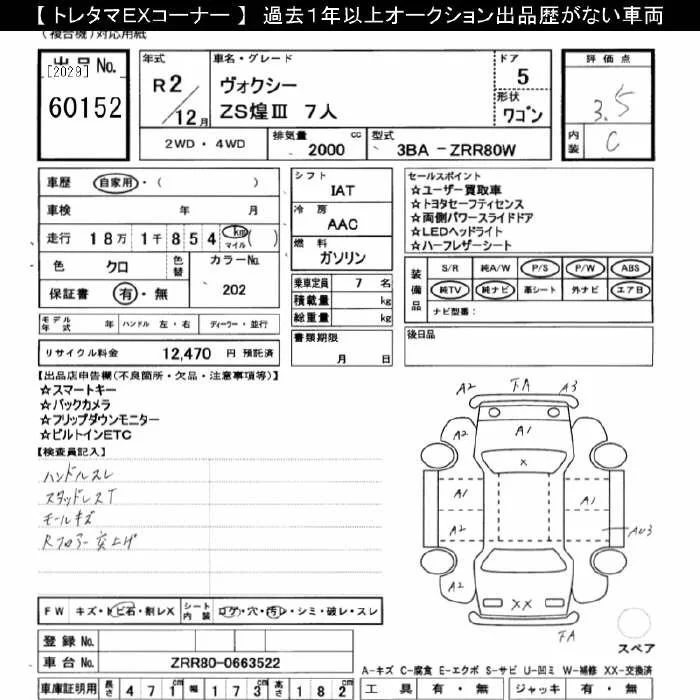 【 トレタマEXコーナー 】 過去１年以上オークション出品歴がない車両
(複合機)対応用紙
出品No.
[2029]
60152
年式
R2/12月
車名・グレード
ヴォクシー
ZS煌Ⅲ 7人
ドア
5
形状
ワゴン
2WD・4WD
排気量
2000 cc
型式
3BA - ZRR80W
評価点
3.5
内装
C
車歴 自家用・( )
車検 年 月
走行 18万 1千 854 km マイル ( )
色 クロ
色替
カラーNo.
202
保証書 有・無
モデル年式 年 ハンドル 左・右 ディーラー・並行
リサイクル料金 12,470 円 預託済
シフト
IAT
冷房
AAC
燃料
ガソリン
乗車定員 7 名
積載量 kg
総重量 kg
書類期限
月 日
セールスポイント
☆ユーザー買取車
☆トヨタセーフティセンス
☆両側パワースライドドア
☆LEDヘッドライト
☆ハーフレザーシート
装備品
S/R 純A/W P/S P/W ABS
純TV 純ナビ 革シート 外ナビ エアB
ナビ型番：
後日品
【出品店申告欄(不良箇所・欠品・注意事項等)】
☆スマートキー
☆バックカメラ
☆フリップダウンモニター
☆ビルトインETC
【検査員記入】
ハンドルスレ
スタッドレスT
モールキズ
Rフロアー突上げ
A2 FA A3
A2 A1 A2
X
A1 A1
A2 AU3
A2 A2
XX
FA
スペア
FW キズ・トビ石・割レX シート内装 コゲ・穴・汚レ・シミ・破レ・スレ
登録 No.
車台 No. ZRR80-0663522
車庫証明用 長さ 471cm 幅 173cm 高さ 182cm
A-キズ C-腐食 E-エクボ S-サビ U-凹ミ W-補修 XX-交換済
工具 有・無 ジャッキ 有・無